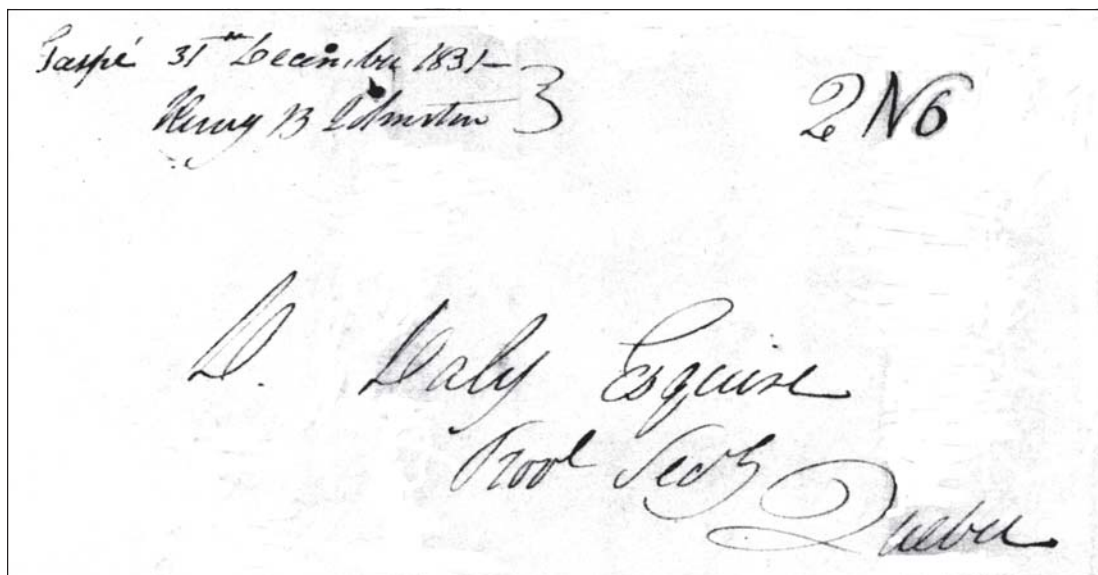 Gaspé 31st December 1831–
Henry B Johnston
2 N6
D. Daly Esquire
Provl Secy
Quebec